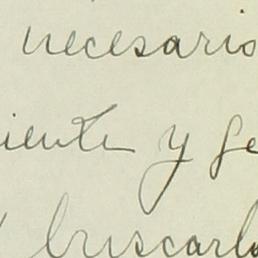 necesario
iente y ge
buscarlo